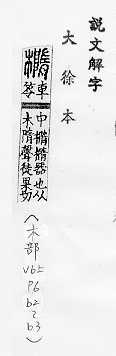 說文解字
大徐本
橢 車笭中橢橢器也从
木隋聲徒果切
(木部
V62
P6
b2
2
b3)